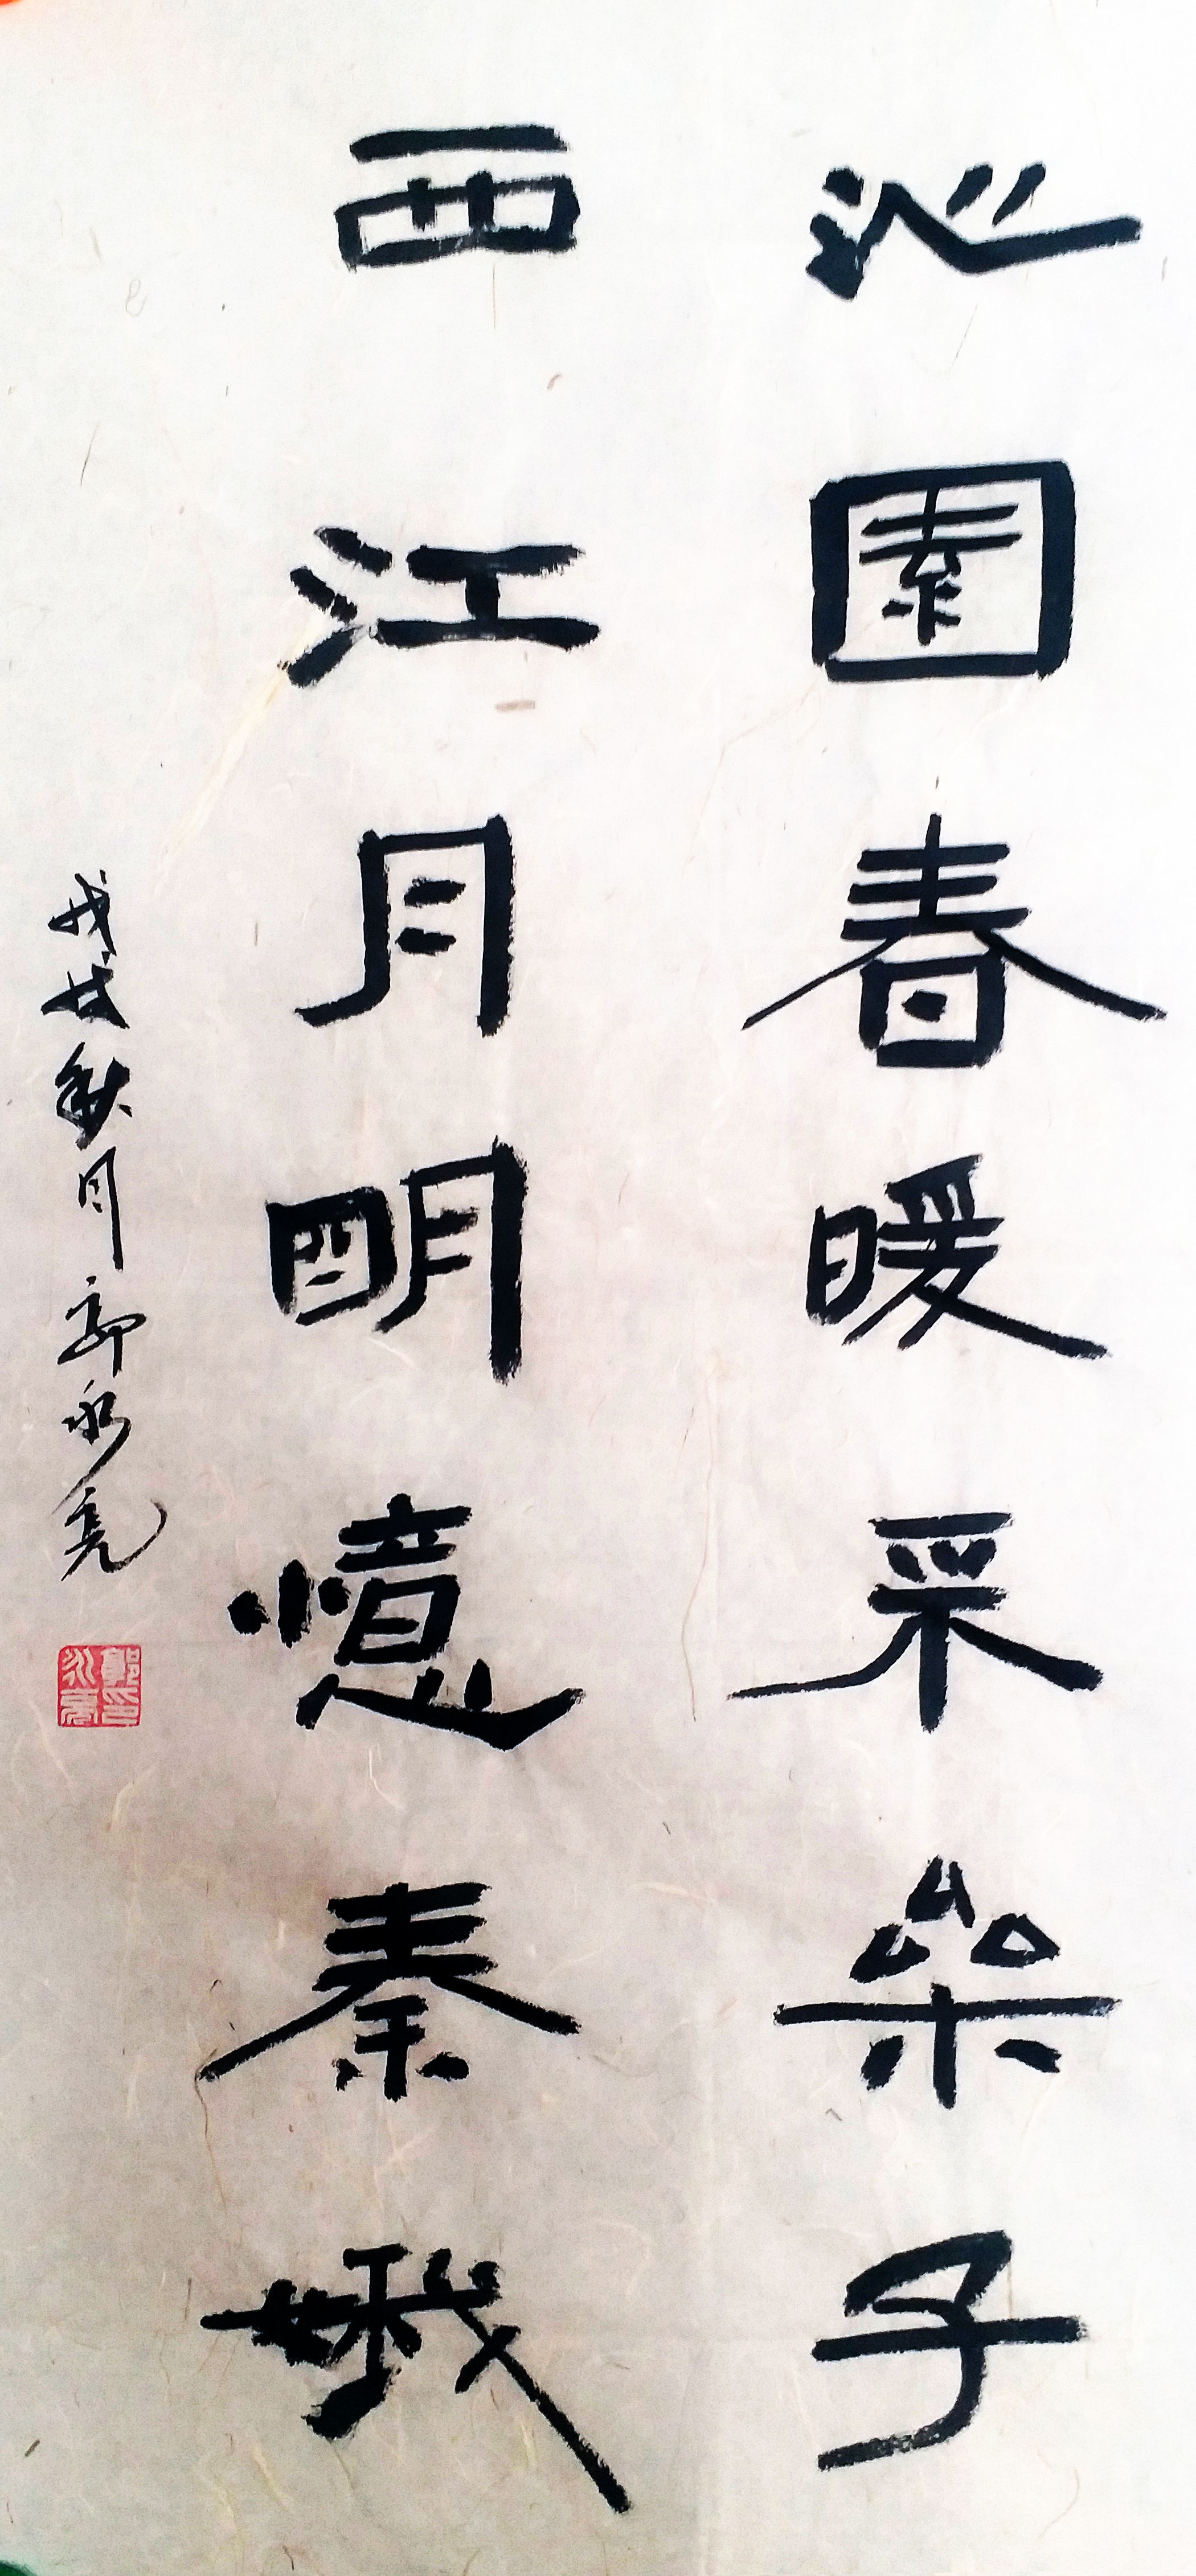 沁園春暖采桑子
西江月明憶秦娥
戊戌秋月郭永亮